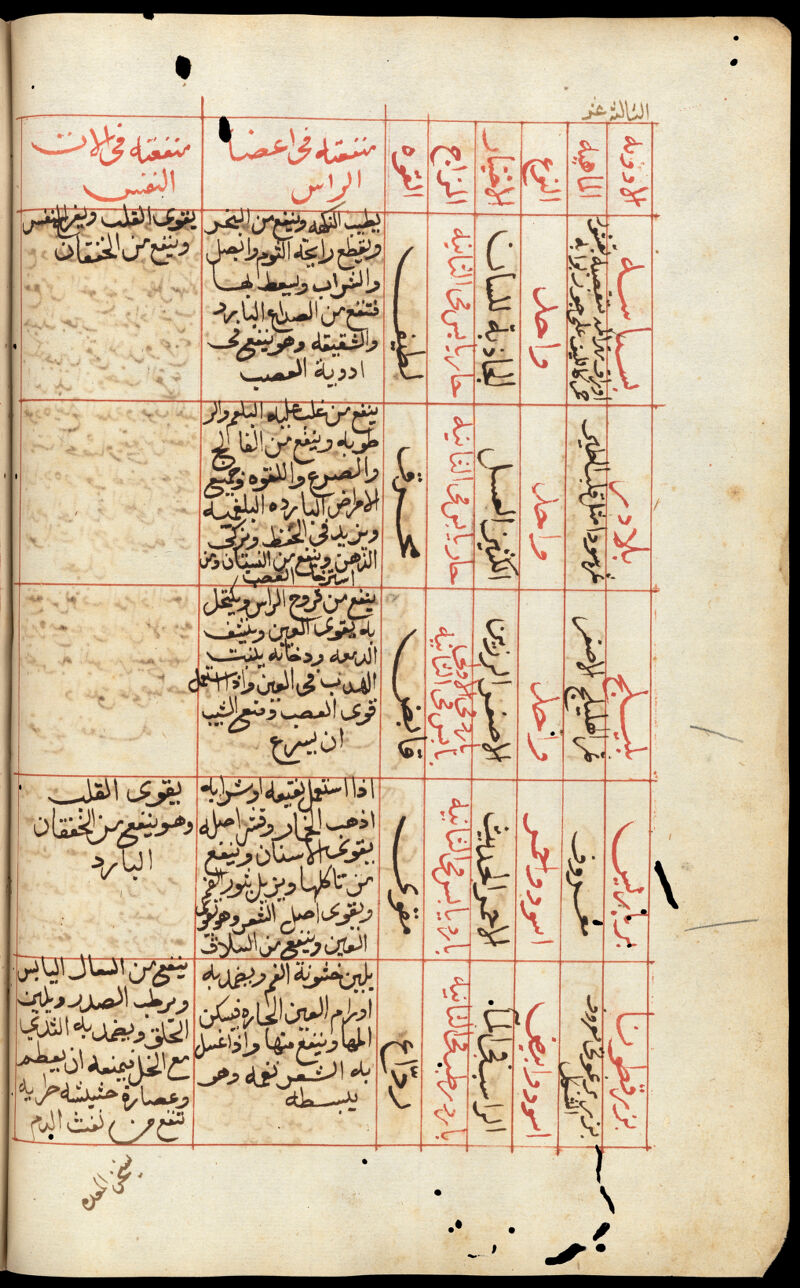 الثالثة عشر
الادويه
الماهيه
النوع
الاختيار
المزاج
القوه
منفعته فى اعضا
الراس
منفعته فى الات
النفس
بسباسه
واحد
الحاذية للسان
حار يابس فى الثانيه
لطيف
يطيب النكهه وينفع من البخر
ويقطع رايحة الثوم والبصل
والشراب ويسعط بها
فتنفع من الصداع البارد
والشقيقه وهو ينفع فى
ادوية العصب
يقوى القلب ويفرح النفس
وينفع من الخفقان
بلادر
ثمر سودا مثل قلب الطير
واحد
الكثير العسل
حار يابس فى الثانيه
محرق
ينفع من غلب عليه البلغم والر
طوبه وينفع من الفالج
والصرع واللقوه وجميع
الامراض البارده البلغميه
ويزيد فى الحفظ ويزكى
الذهن وينفع من النسيان ومن
استرخا العصب
بليلج
ثمر اهليلج الاصفر
واحد
الاصفر الرزين
بارد فى الاولى
يابس فى الثانيه
قابض
ينفع من قروح الراس ويكتحل
به يقوى العين وينشف
الدمعه ودخانه ينبت
الهدب فى العين واذا استعمل
قوى العصب ومنع الشيب
ان يسرع
برباريس
معروف
اسود واحمر
الاحمر الحديث
بارد يابس فى الثانيه
مقوى
اذا استعمل نقيعه او شرابه
اذهب الخمار وقشر اصله
يقوى الاسنان وينفع
من تاكلها ويزيل بثور الفم
ويقوى اصل الشعر وهو يقوى
العين وينفع من السلاق
يقوى القلب
وهو ينفع من الخفقان
البارد
بزرقطونا
بزر برغوثى معروف
الشكل
اسود وابيض
الراسب فى الماء
بارد رطب فى الثانيه
ردّاع
يلين خشونة الفم ويضمد به
اورام العين الحاره فيسكن
المها وينفع منها واذا غسل
به الشعر نعمه وهو
يبسطه
ينفع من السعال اليابس
ويرطب الصدر ويلين
الحلق ويضمد به الثدي
مع الخل فيمنعه ان يعظم
وعصارة حشيشه طريه
تنفع من نفث الدم